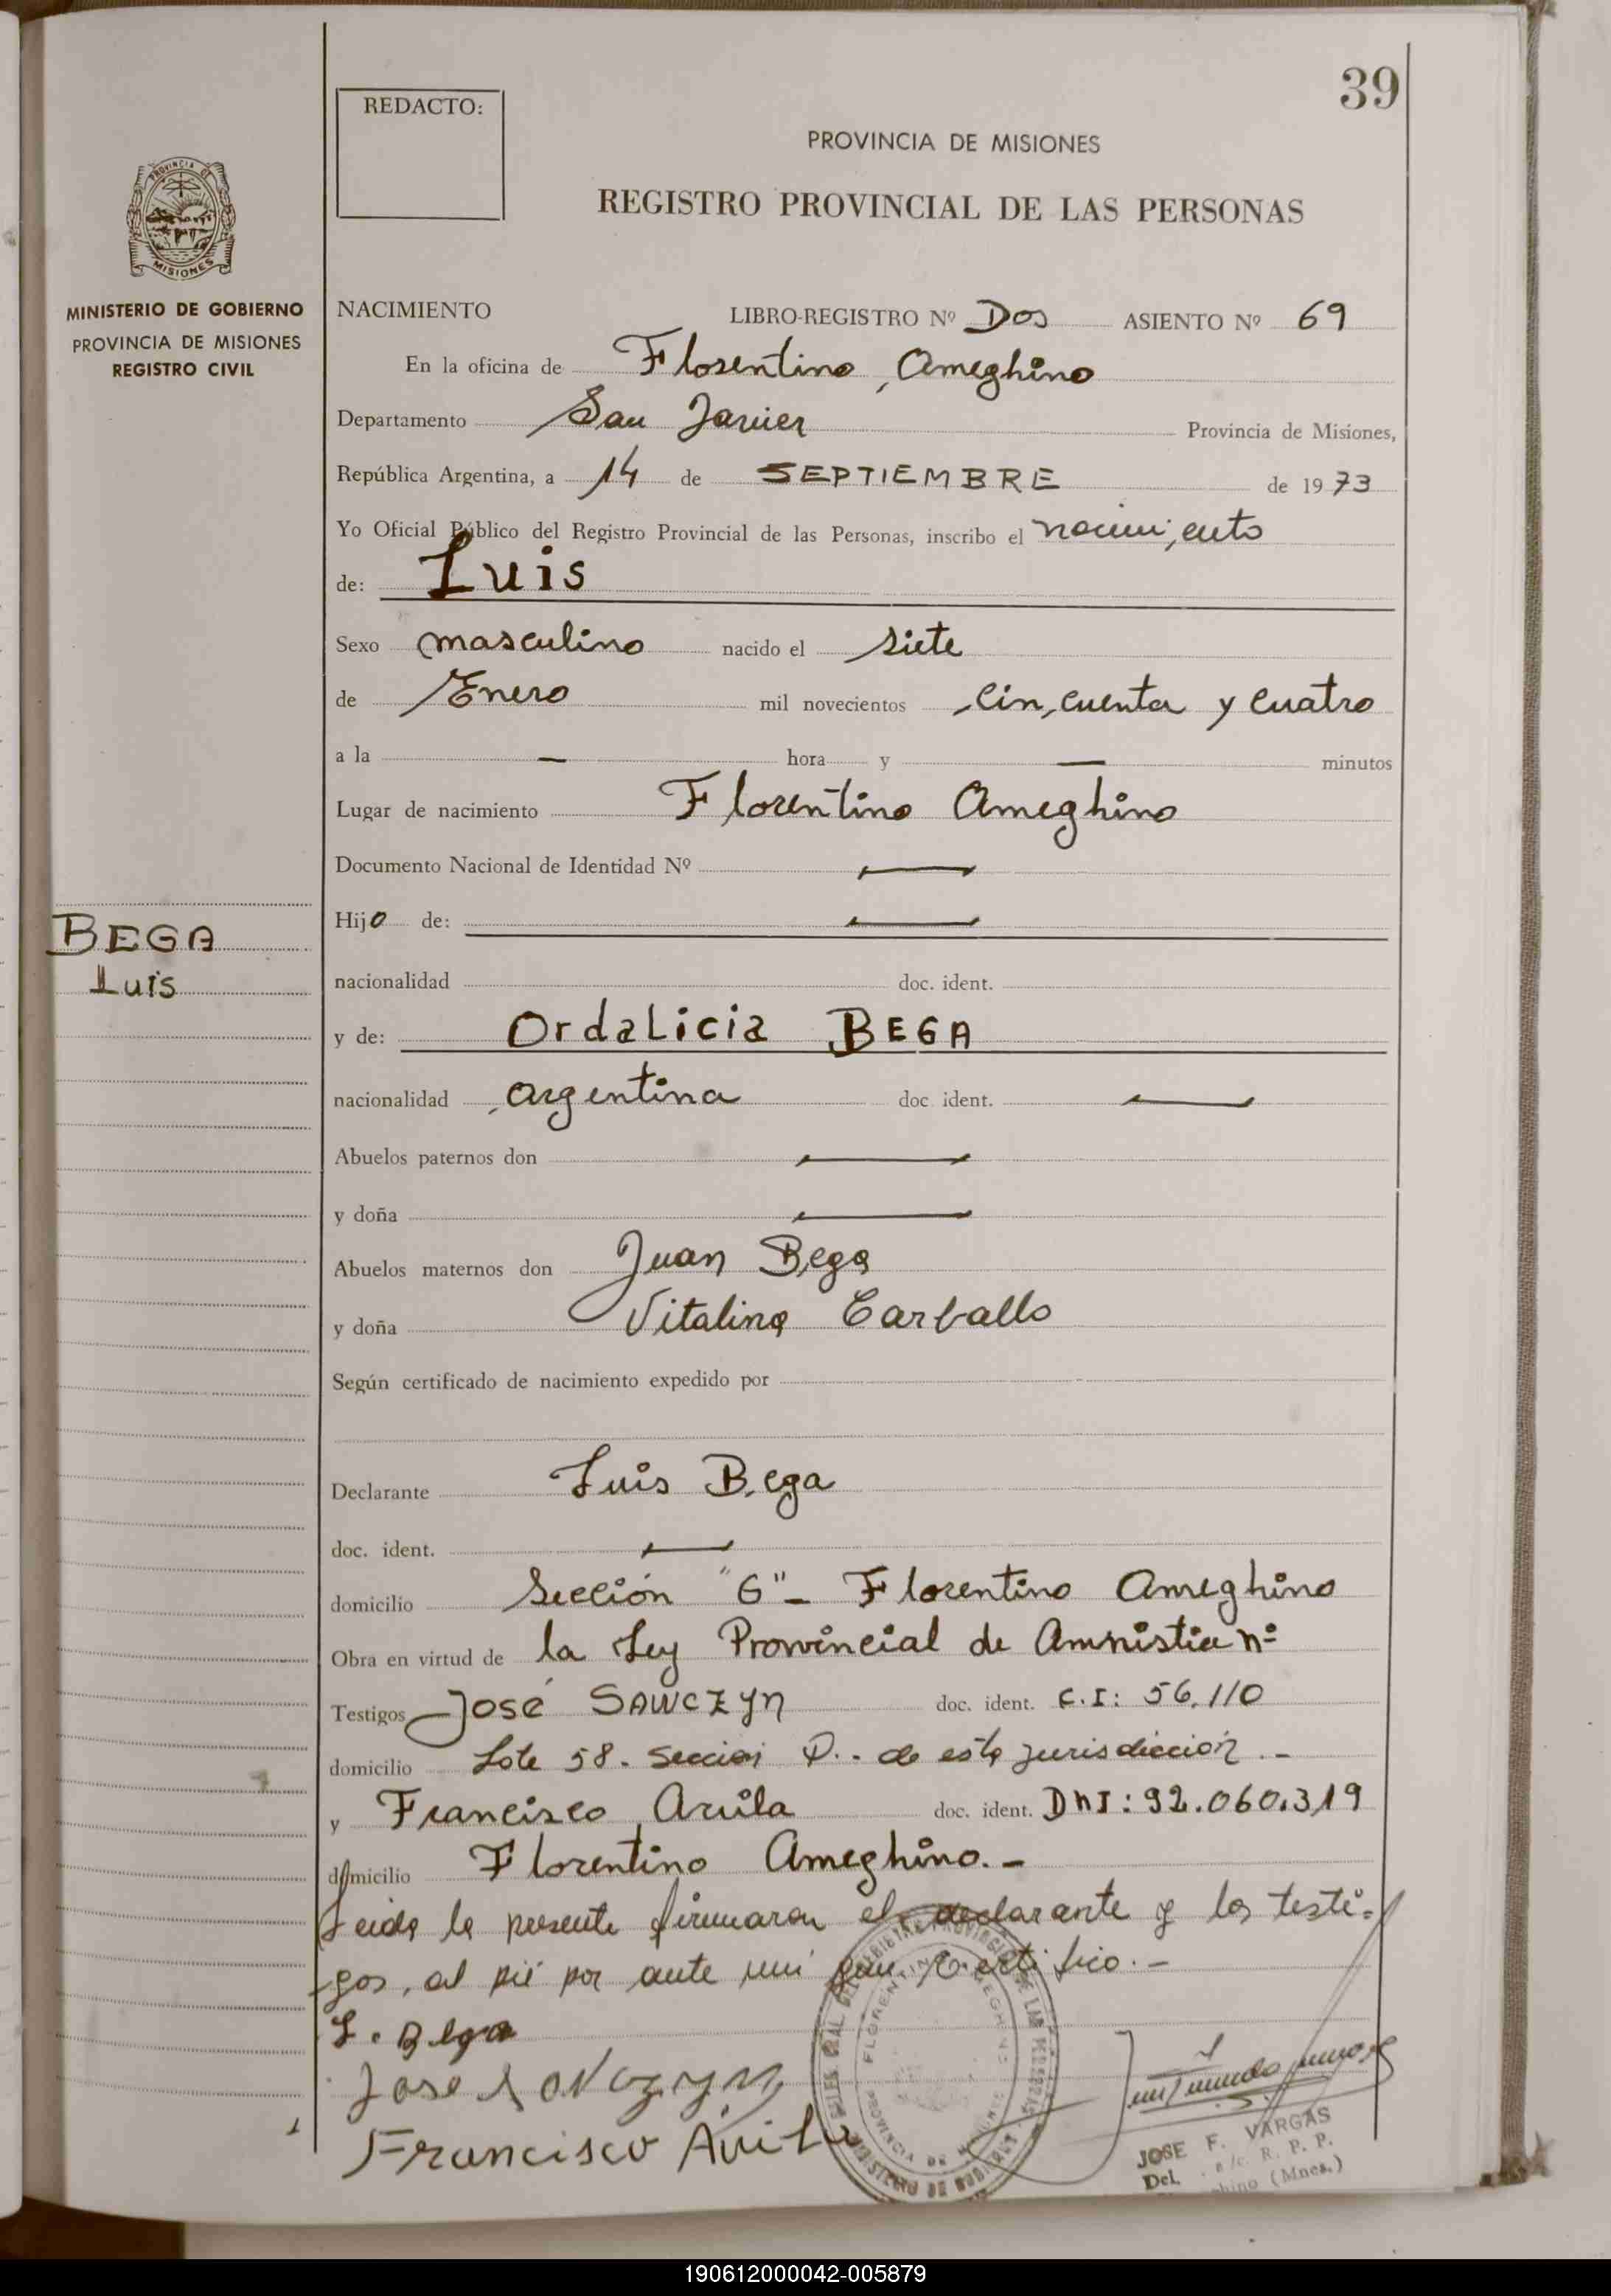 39
REDACTO:
PROVINCIA DE MISIONES
REGISTRO PROVINCIAL DE LAS PERSONAS
PROVINCIA DE
MISIONES
MINISTERIO DE GOBIERNO
PROVINCIA DE MISIONES
REGISTRO CIVIL
NACIMIENTO LIBRO-REGISTRO Nº Dos ASIENTO Nº 69
En la oficina de Florentino Ameghino
Departamento San Javier Provincia de Misiones,
República Argentina, a 14 de SEPTIEMBRE de 1973
Yo Oficial Público del Registro Provincial de las Personas, inscribo el nacimiento
de: Luis
Sexo masculino nacido el siete
de Enero mil novecientos cincuenta y cuatro
a la — hora y — minutos
Lugar de nacimiento Florentino Ameghino
Documento Nacional de Identidad Nº —
Hijo de: —
BEGA
Luis
nacionalidad doc. ident.
y de: Ordalicia BEGA
nacionalidad argentina doc. ident. —
Abuelos paternos don —
y doña —
Abuelos maternos don Juan Bega
y doña Vitalina Carballo
Según certificado de nacimiento expedido por
Declarante Luis Bega
doc. ident. —
domicilio Sección "G"- Florentino Ameghino
Obra en virtud de la Ley Provincial de Amnistia nº
Testigos José SAWCZYn doc. ident. C.I: 56.110
domicilio Lote 58. Sección D.- de este jurisdicción.-
y Francisco Avila doc. ident. DNI: 92.060.319
domicilio Florentino Ameghino.-
Leida la presente firmaron el declarante y los testi-
gos, al pié por ante mi que Certifico.-
L. Bega
Francisco Avila
FLORENTINO AMEGHINO
PROVINCIA DE MISIONES
JOSE F. VARGAS
Del. a/c. R. P. P.
(Mnes.)
190612000042-005879